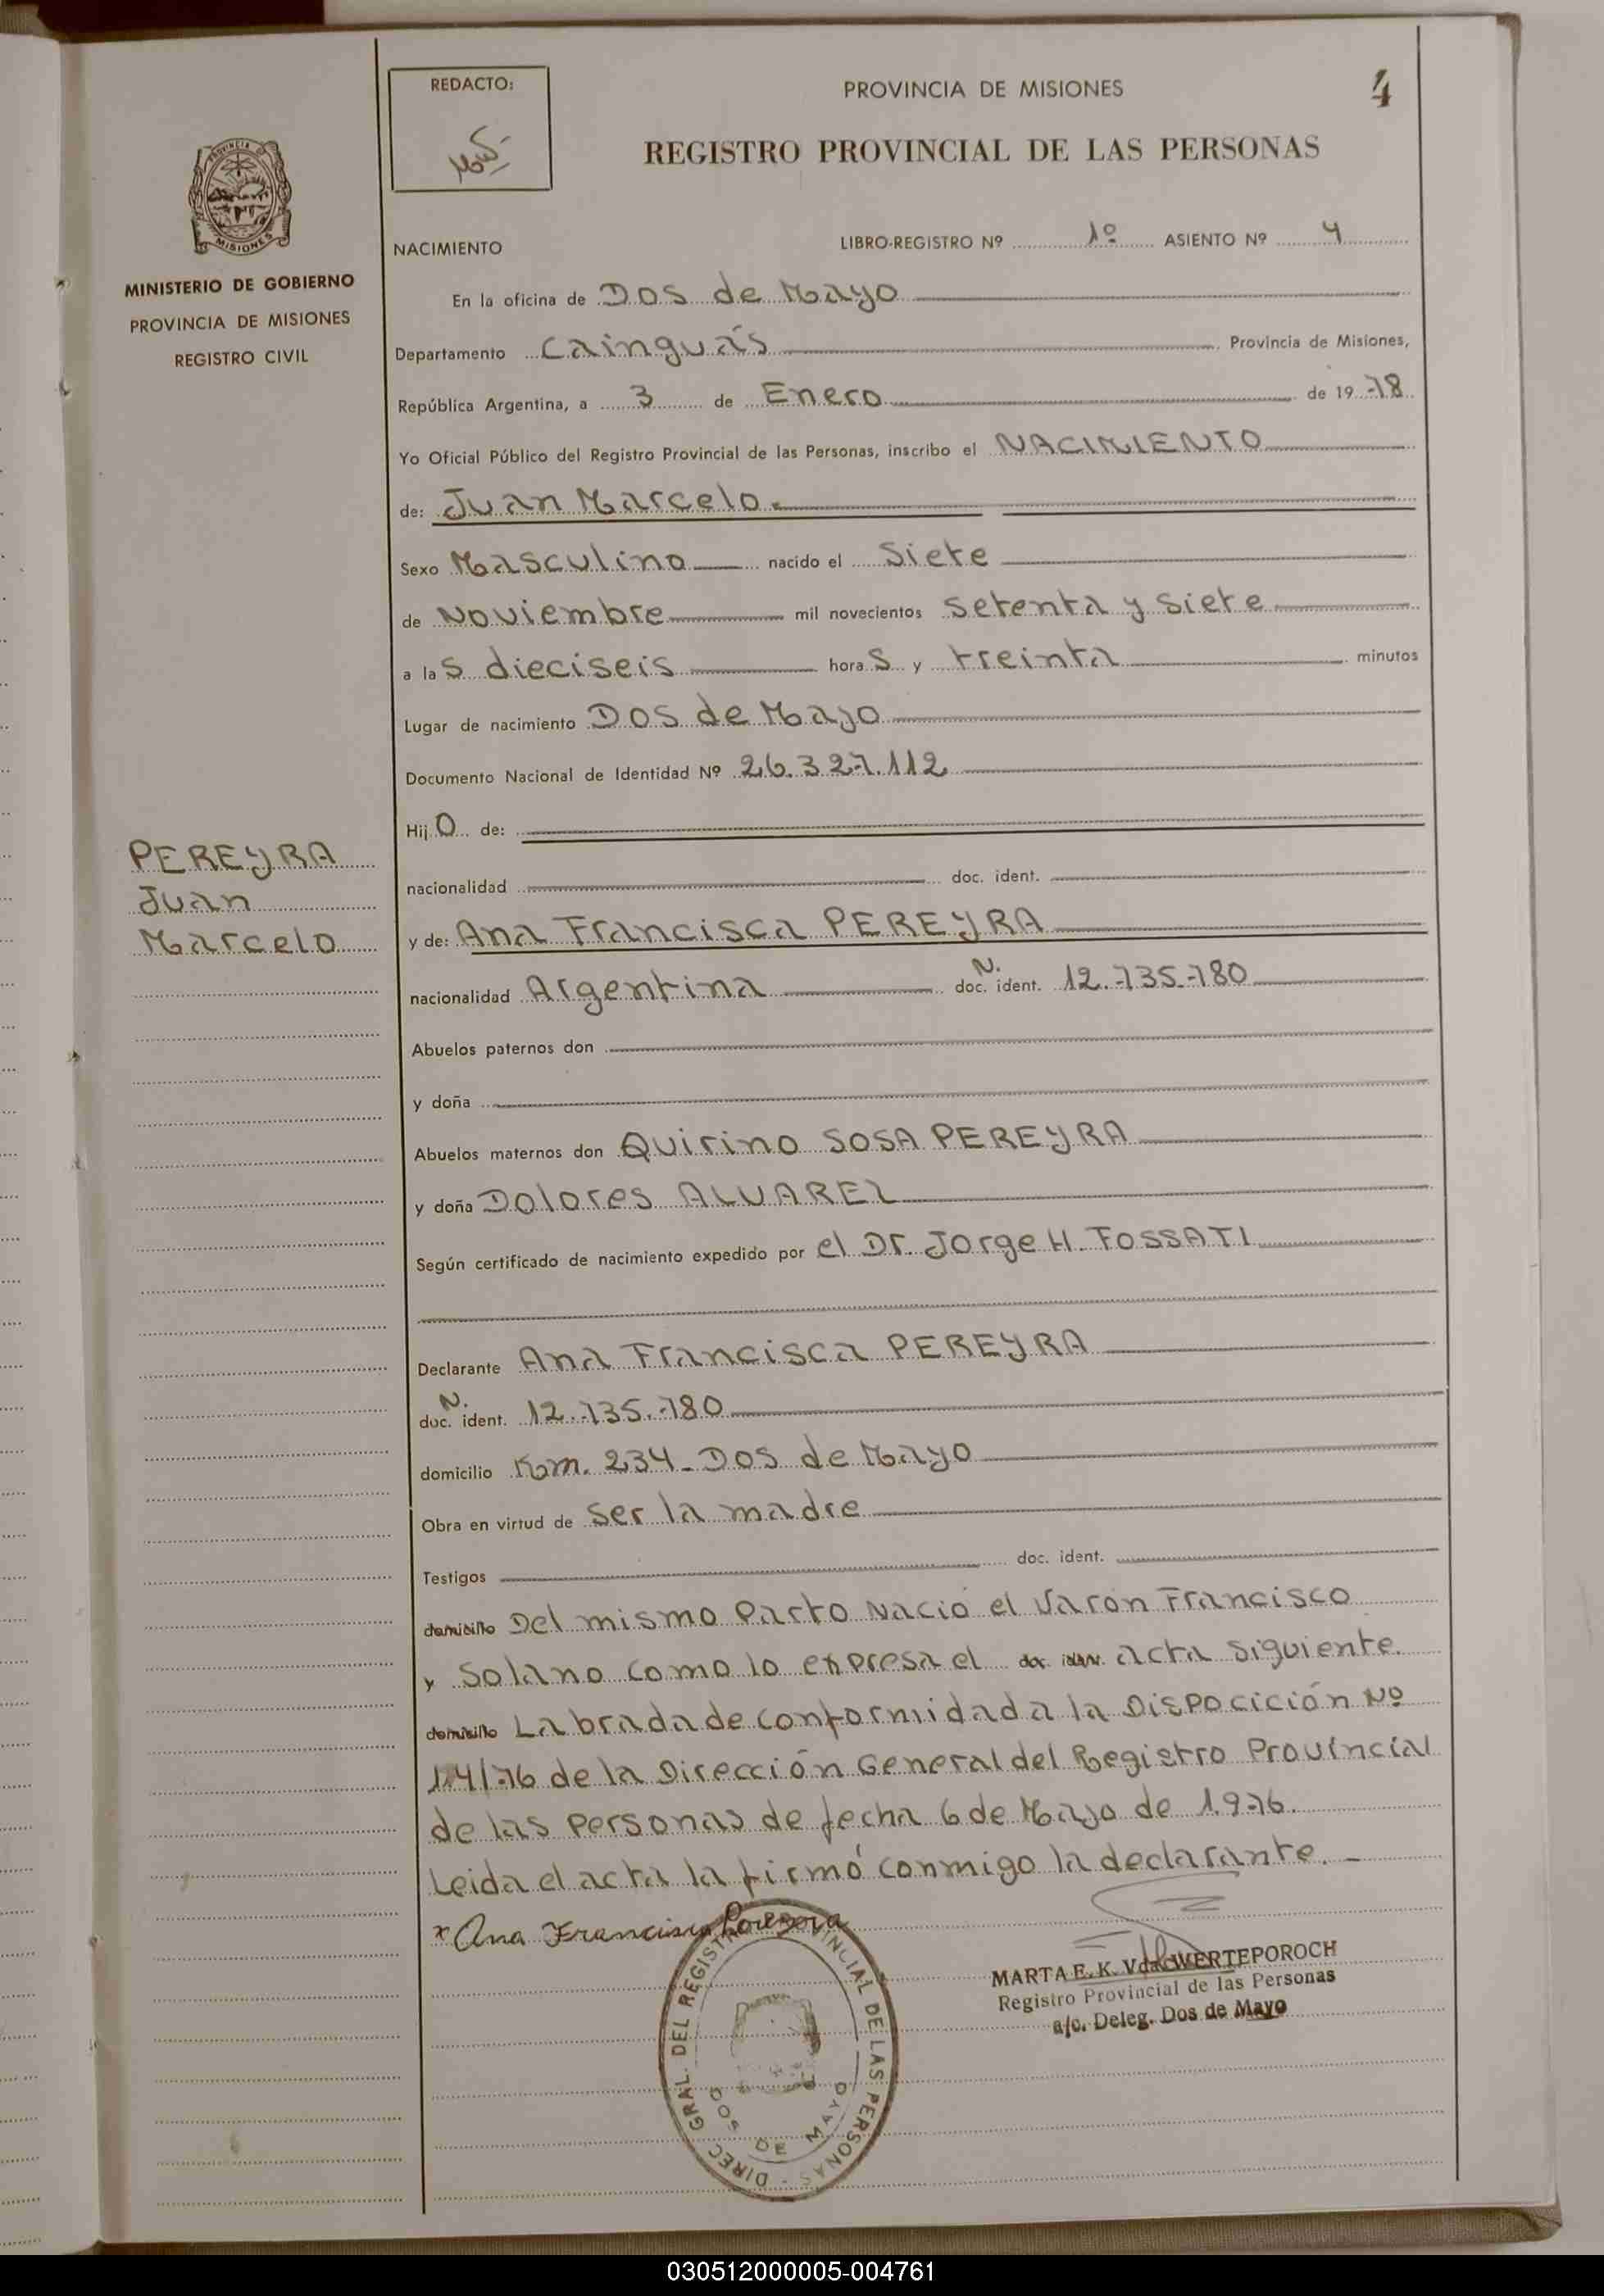 REDACTO:
PROVINCIA DE MISIONES
4
REGISTRO PROVINCIAL DE LAS PERSONAS
PROVINCIA
MISIONES
MINISTERIO DE GOBIERNO
PROVINCIA DE MISIONES
REGISTRO CIVIL
NACIMIENTO
LIBRO-REGISTRO Nº 1º ASIENTO Nº 4
En la oficina de Dos de Mayo
Departamento Cainguás Provincia de Misiones,
República Argentina, a 3 de Enero de 19 78
Yo Oficial Público del Registro Provincial de las Personas, inscribo el NACIMIENTO
de: Juan Marcelo.
Sexo Masculino nacido el Siete
de Noviembre mil novecientos Setenta y Siete
a las dieciseis horas y treinta minutos
Lugar de nacimiento Dos de Mayo
Documento Nacional de Identidad Nº 26.327.112
Hijo de:
nacionalidad doc. ident.
PEREYRA
Juan
Marcelo
y de: Ana Francisca PEREYRA
nacionalidad Argentina doc. N. ident. 12.735.780
Abuelos paternos don
y doña
Abuelos maternos don Quirino SOSA PEREYRA
y doña Dolores ALVAREZ
Según certificado de nacimiento expedido por el Dr. Jorge H. FOSSATI
Declarante Ana Francisca PEREYRA
doc. N. ident. 12.735.780
domicilio Km. 234 - Dos de Mayo
Obra en virtud de ser la madre
Testigos doc. ident.
domicilio Del mismo Parto Nació el Varón Francisco
y Solano como lo expresa el doc. iden. acta Siguiente.
domicilio Labrada de conformidad a la Disposición Nº
14/76 de la Dirección General del Registro Provincial
de las Personas de fecha 6 de Mayo de 1.976.
Leida el acta la firmó conmigo la declarante. -
x Ana Francisca Pereyra
MARTA E. K. Vda. WERTEPOROCH
Registro Provincial de las Personas
a/c. Deleg. Dos de Mayo
DIREC GRAL. DEL REGISTRO PROVINCIAL DE LAS PERSONAS -
DOS DE MAYO
030512000005-004761